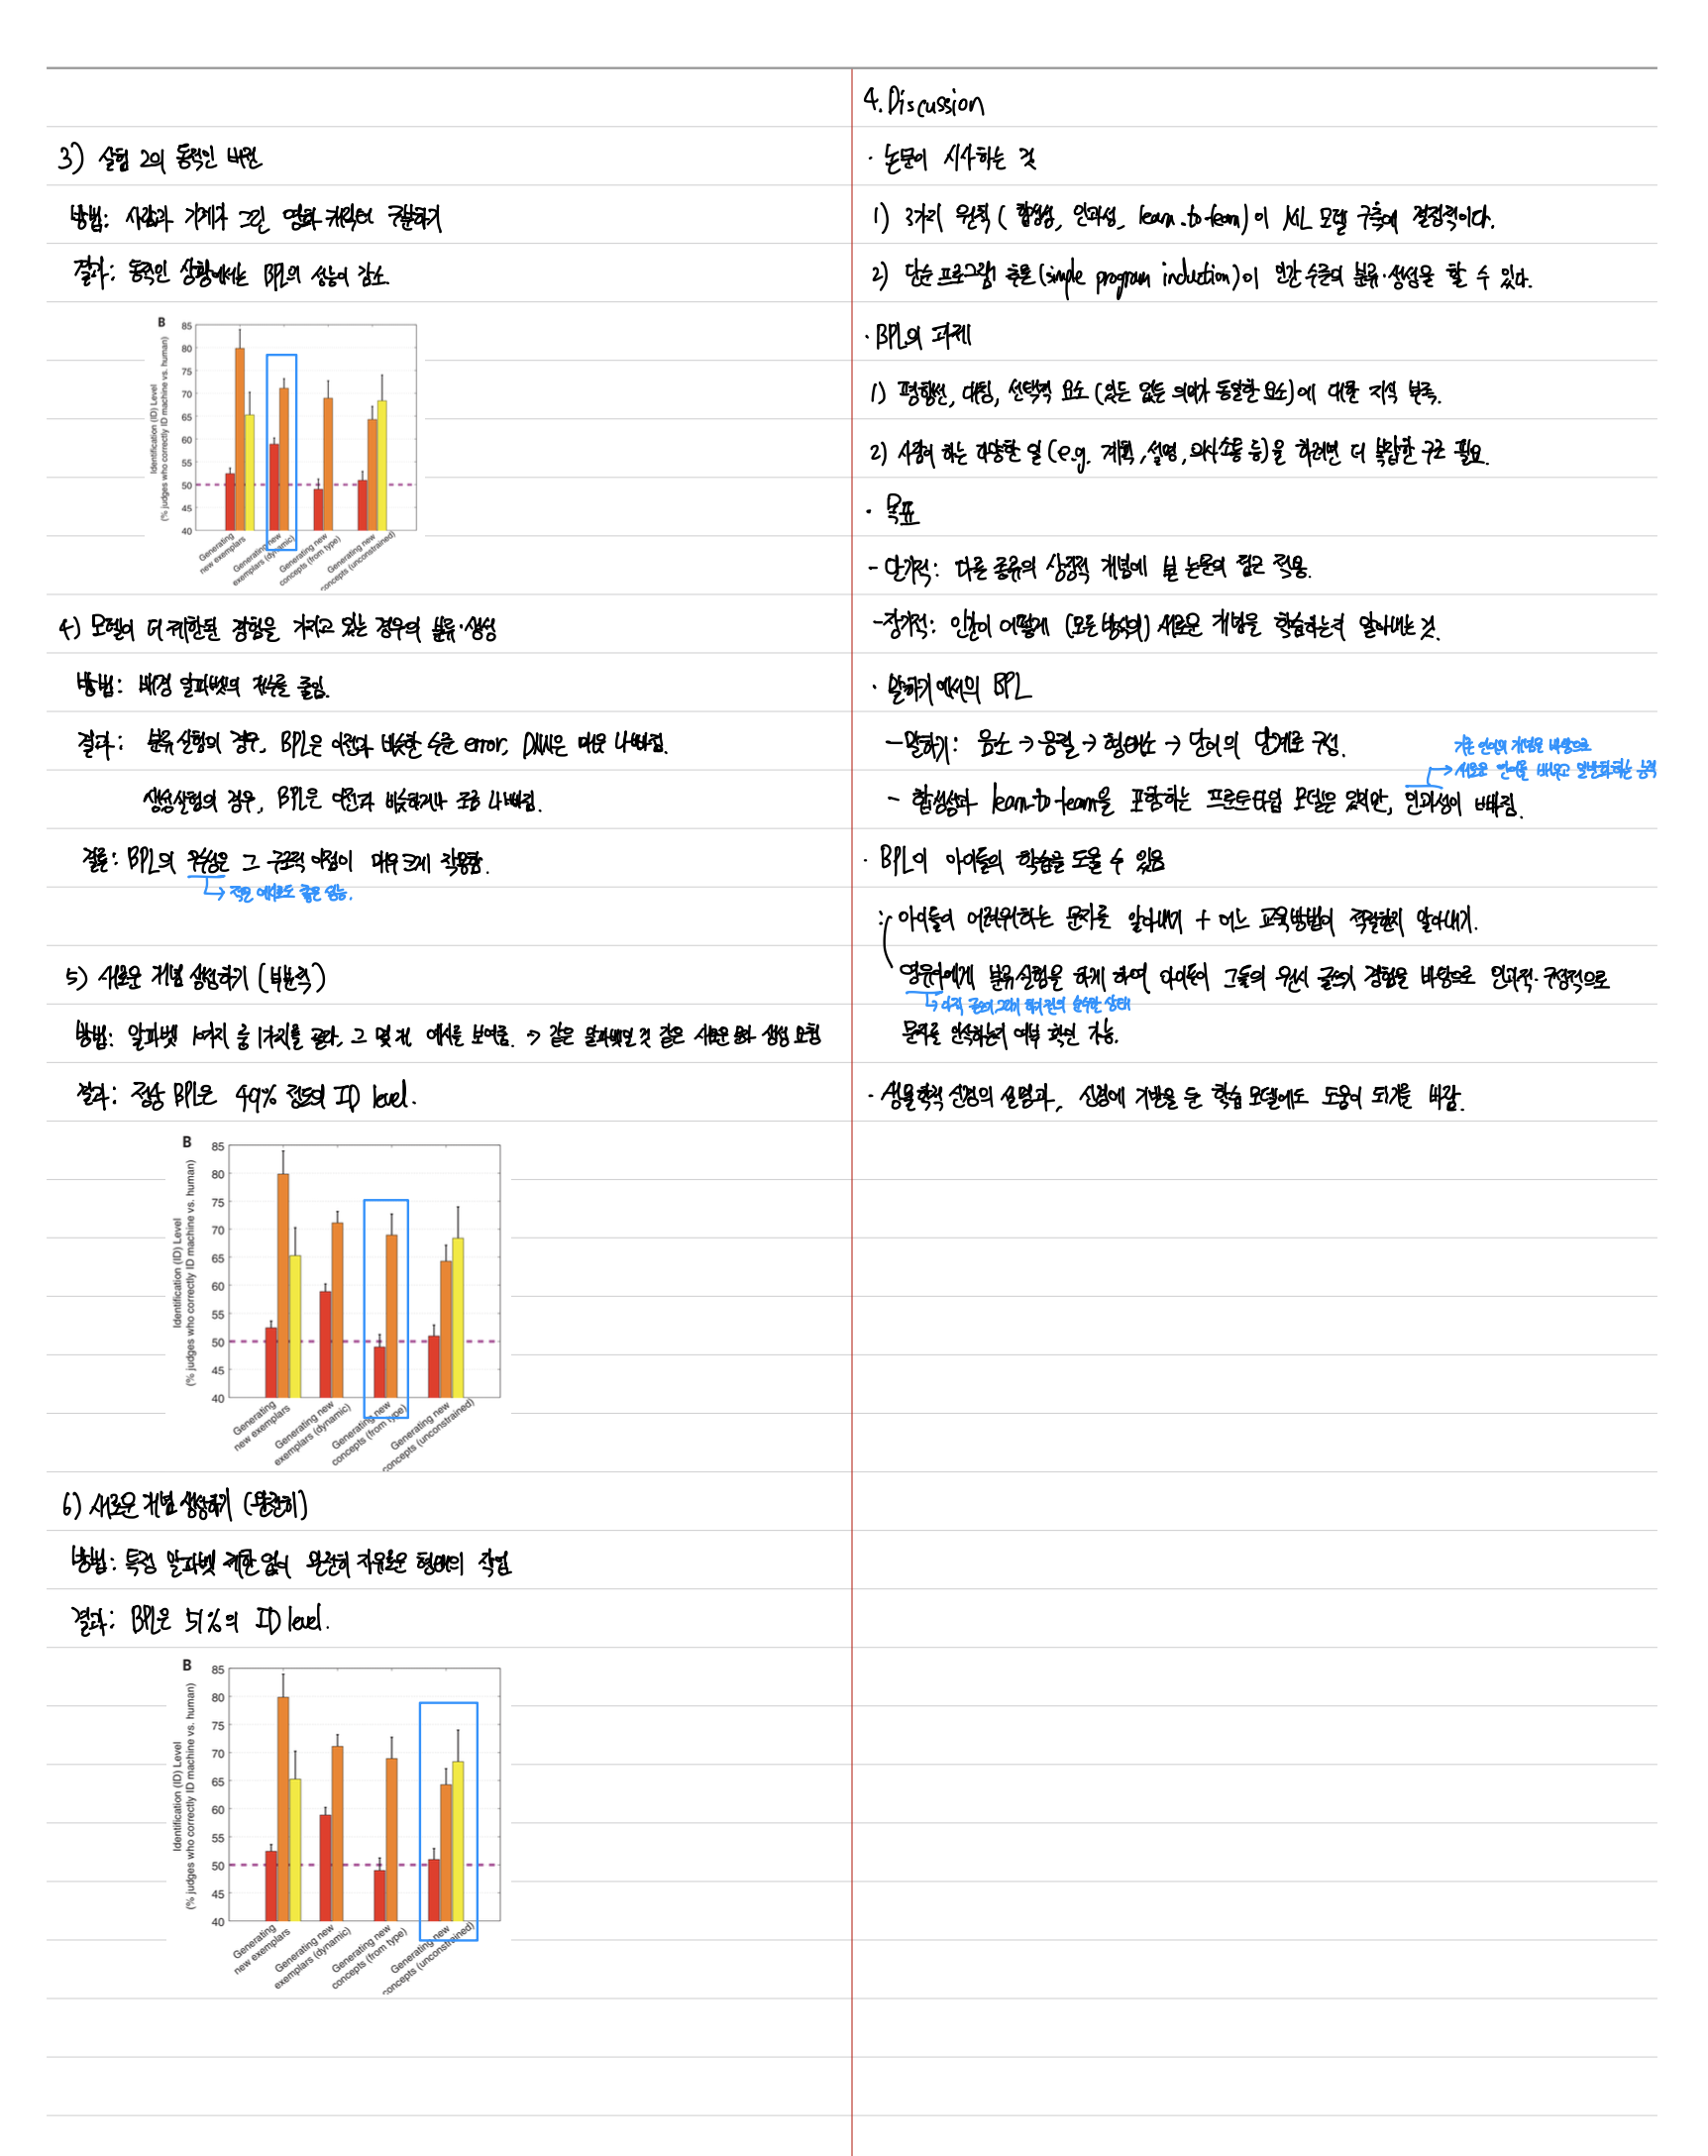 3) 실험 2의 동적인 버전
방법: 사람과 기계가 그린 영화 캐릭터 구분하기
결과: 동적인 상황에서는 BPL의 성능이 감소.
B
Identification (ID) Level
(% judges who correctly ID machine vs. human)
85
80
75
70
65
60
55
50
45
40
Generating new exemplars
Generating new exemplars (dynamic)
Generating new concepts (from type)
Generating new concepts (unconstrained)
4) 모델이 더 제한된 경험을 가지고 있는 경우의 분류·생성
방법: 배경 알파벳의 개수를 줄임.
결과: 분류실험의 경우, BPL은 이전과 비슷한 수준 error, DNN은 매우 나빠짐.
생성실험의 경우, BPL은 이전과 비슷하거나 조금 나빠짐.
결론: BPL의 우수성은 그 구조적 이점이 매우 크게 작용함.
→ 적은 예시로도 좋은 성능.
5) 새로운 개념 생성하기 (부분적)
방법: 알파벳 10가지 중 1가지를 골라, 그 몇 개 예시를 보여줌. → 같은 알파벳인 것 같은 새로운 문자 생성 요청
결과: 정상 BPL은 49% 정도의 ID level.
B
Identification (ID) Level
(% judges who correctly ID machine vs. human)
85
80
75
70
65
60
55
50
45
40
Generating new exemplars
Generating new exemplars (dynamic)
Generating new concepts (from type)
Generating new concepts (unconstrained)
6) 새로운 개념 생성하기 (완전히)
방법: 특정 알파벳 제한 없이 완전히 자유로운 형태의 작업
결과: BPL은 51%의 ID level.
B
Identification (ID) Level
(% judges who correctly ID machine vs. human)
85
80
75
70
65
60
55
50
45
40
Generating new exemplars
Generating new exemplars (dynamic)
Generating new concepts (from type)
Generating new concepts (unconstrained)
4. Discussion
· 논문이 시사하는 것
1) 3가지 원칙 (합성성, 인과성, learn-to-learn)이 ML 모델 구축에 결정적이다.
2) 단순 프로그램 추론(simple program induction)이 인간 수준의 분류·생성을 할 수 있다.
· BPL의 과제
1) 평행선, 대칭, 선택적 요소 (있든 없든 의미가 동일한 요소)에 대한 지식 부족.
2) 사람이 하는 다양한 일 (e.g. 계획, 설명, 의사소통 등)을 하려면 더 복잡한 구조 필요.
· 목표
- 단기적: 다른 종류의 상징적 개념에 본 논문의 접근 적용.
- 장기적: 인간이 어떻게 (모든 방식의) 새로운 개념을 학습하는지 알아내는 것.
· 말하기에서의 BPL
- 말하기: 음소 → 음절 → 형태소 → 단어의 단계로 구성.
기존 언어의 개념을 바탕으로
→ 새로운 언어를 배우고 일반화하는 능력
- 합성성과 learn-to-learn을 포함하는 프로토타입 모델은 있지만, 인과성이 빠짐.
· BPL이 아이들의 학습을 도울 수 있음
: 아이들이 어려워하는 문자를 알아내기 + 어느 교육방법이 적절한지 알아내기.
영유아에게 분류실험을 하게 하여 아이들이 그들의 원시 글쓰기 경험을 바탕으로 인과적·구성적으로
→ 아직 글쓰기, 그리기 하기 전의 순수한 상태
문자를 인식하는지 여부 확인 가능.
· 생물학적 신경의 설명과, 신경에 기반을 둔 학습 모델에도 도움이 되기를 바람.